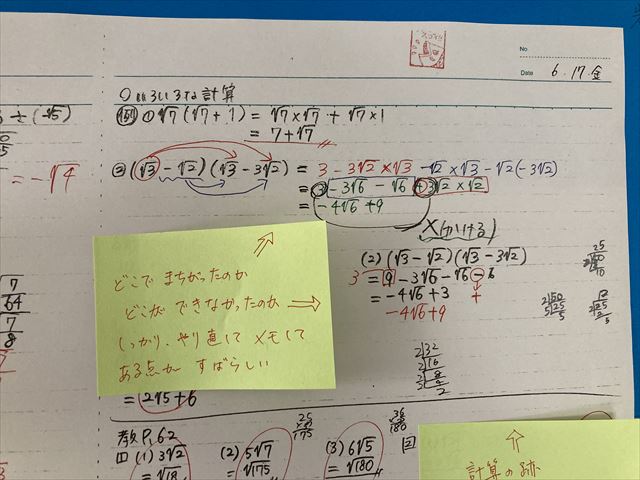 No
Date 6.17.金
○いろいろな計算
例 ① √7(√7+1) = √7×√7 + √7×1
= 7+√7
② (√3 - √2)(√3 - 3√2) = 3 - 3√2×√3 - √2×√3 - √2(-3√2)
= 3 - 3√6 - √6 + 3√2×√2
= -4√6 + 9
÷(-√5)
= -√4
X(かける)
(2) (√3 - √2)(√3 - 3√2)
3
= 9 - 3√6 - √6 - 6
= -4√6 + 3 +
-4√6 + 9
どこで まちがったのか
どこが できなかったのか
しっかり、やり直して メモして
ある点が すばらしい
= 2√5 + 6
教P.62
(1) 3√2
= √18
(2) 5√7
= √175
(3) 6√5
= √180
計算の跡